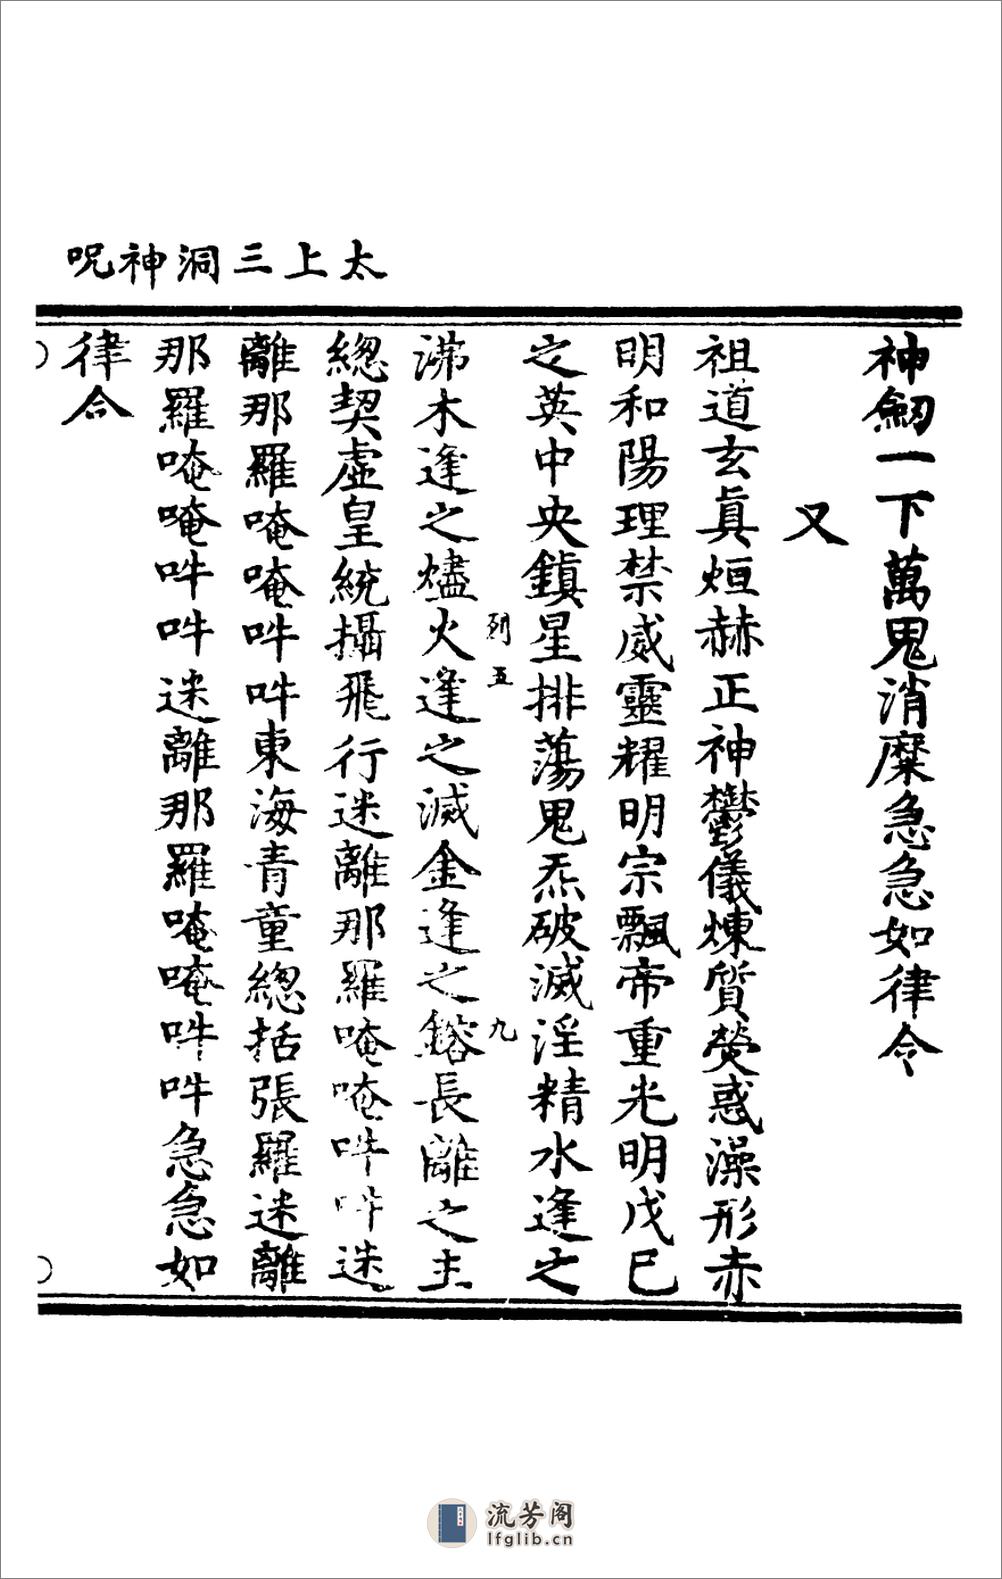 太上三洞神呪
神劒一下萬鬼消糜急急如律令
又
祖道玄真烜赫正神鬱儀煉質熒惑澡形赤
明和陽理禁威靈耀明宗飄帝重光明戊巳
之英中央鎮星排蕩鬼炁破滅淫精水逢之
列五 九
沸木逢之燼火逢之滅金逢之鎔長離之主
總契虛皇統攝飛行迷離那羅唵唵吽吽迷
離那羅唵唵吽吽東海青童總括張羅迷離
那羅唵唵吽吽迷離那羅唵唵吽吽急急如
律令
流芳阁
lfglib.cn